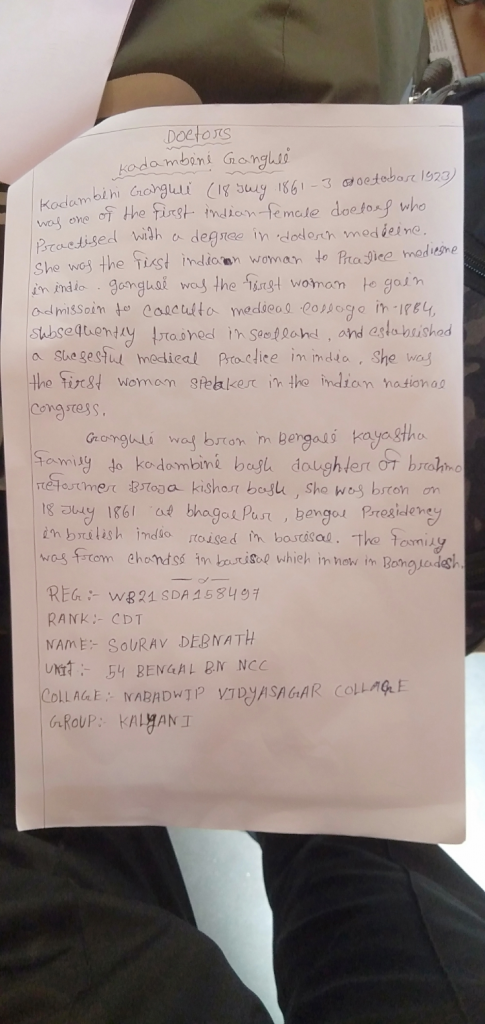 Doctors
Kadambini Ganguli
Kadambini Ganguli (18 July 1861 - 3 october 1923)
was one of the first indian female doctors who
Practised with a degree in modern medicine.
She was the first indian woman to Practice medicine
in india. ganguli was the first woman to gain
admissoin to calcutta medical collage in-1884,
subsequently trained in scotland, and established
a sucsesful medical Practice in india. She was
the first woman speaker in the indian national
congress.
Ganguli was bron in Bengali kayastha
family to kadambini bash daughter of brahmo
reformer Broja kishor bash, she was bron on
18 July 1861 at bhagalpur, bengal Presidency
in british india raised in barisal. The family
was from chandsi in barisal which in now in Bangladesh.
REG:- WB21SDA158497
RANK:- CDT
NAME:- SOURAV DEBNATH
UNIT:- 54 BENGAL BN NCC
COLLAGE:- NABADWIP VIDYASAGAR COLLAGE
GROUP:- KALYANI